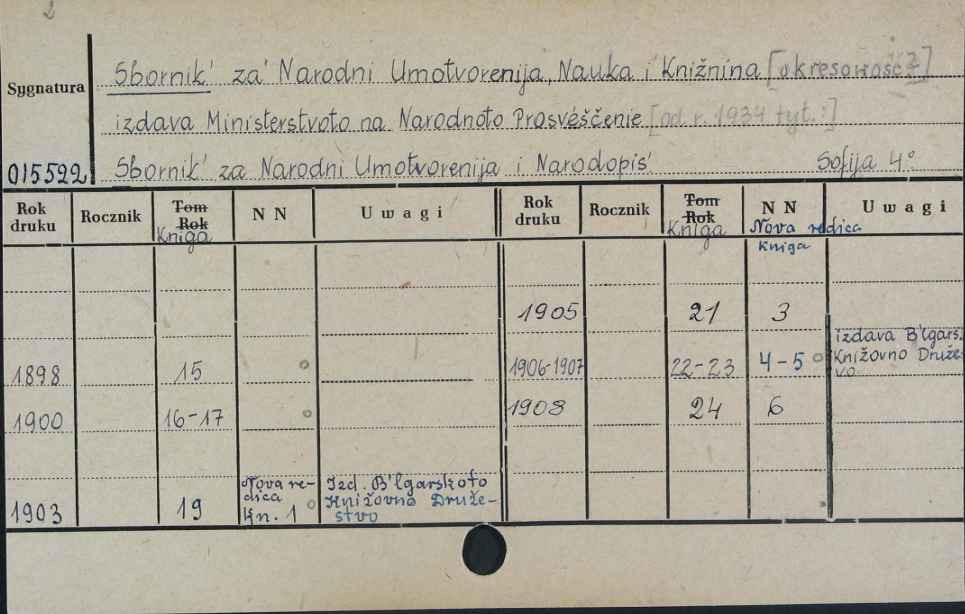 2
Sygnatura
Sbornik' za' Narodni Umotvorenija, Nauka i Knižnina [okresowość?]
izdava Ministerstvoto na Narodnoto Prosvěščenie [od r. 1934 tyt.:]
015522 Sbornik' za Narodni Umotvorenija i Narodopis' Sofija 4°
Rok druku Rocznik Tom Rok Kniga N N Uwagi Rok druku Rocznik Tom Rok Kniga N N Nova redica kniga Uwagi
1905 21 3
1898 15 1906-1907 22-23 4-5 izdava B'lgars. Knižovno Druževo
1900 16-17 1908 24 6
1903 19 Nova redica Kn. 1 Izd. B'lgarskoto Knižovno Družestvo